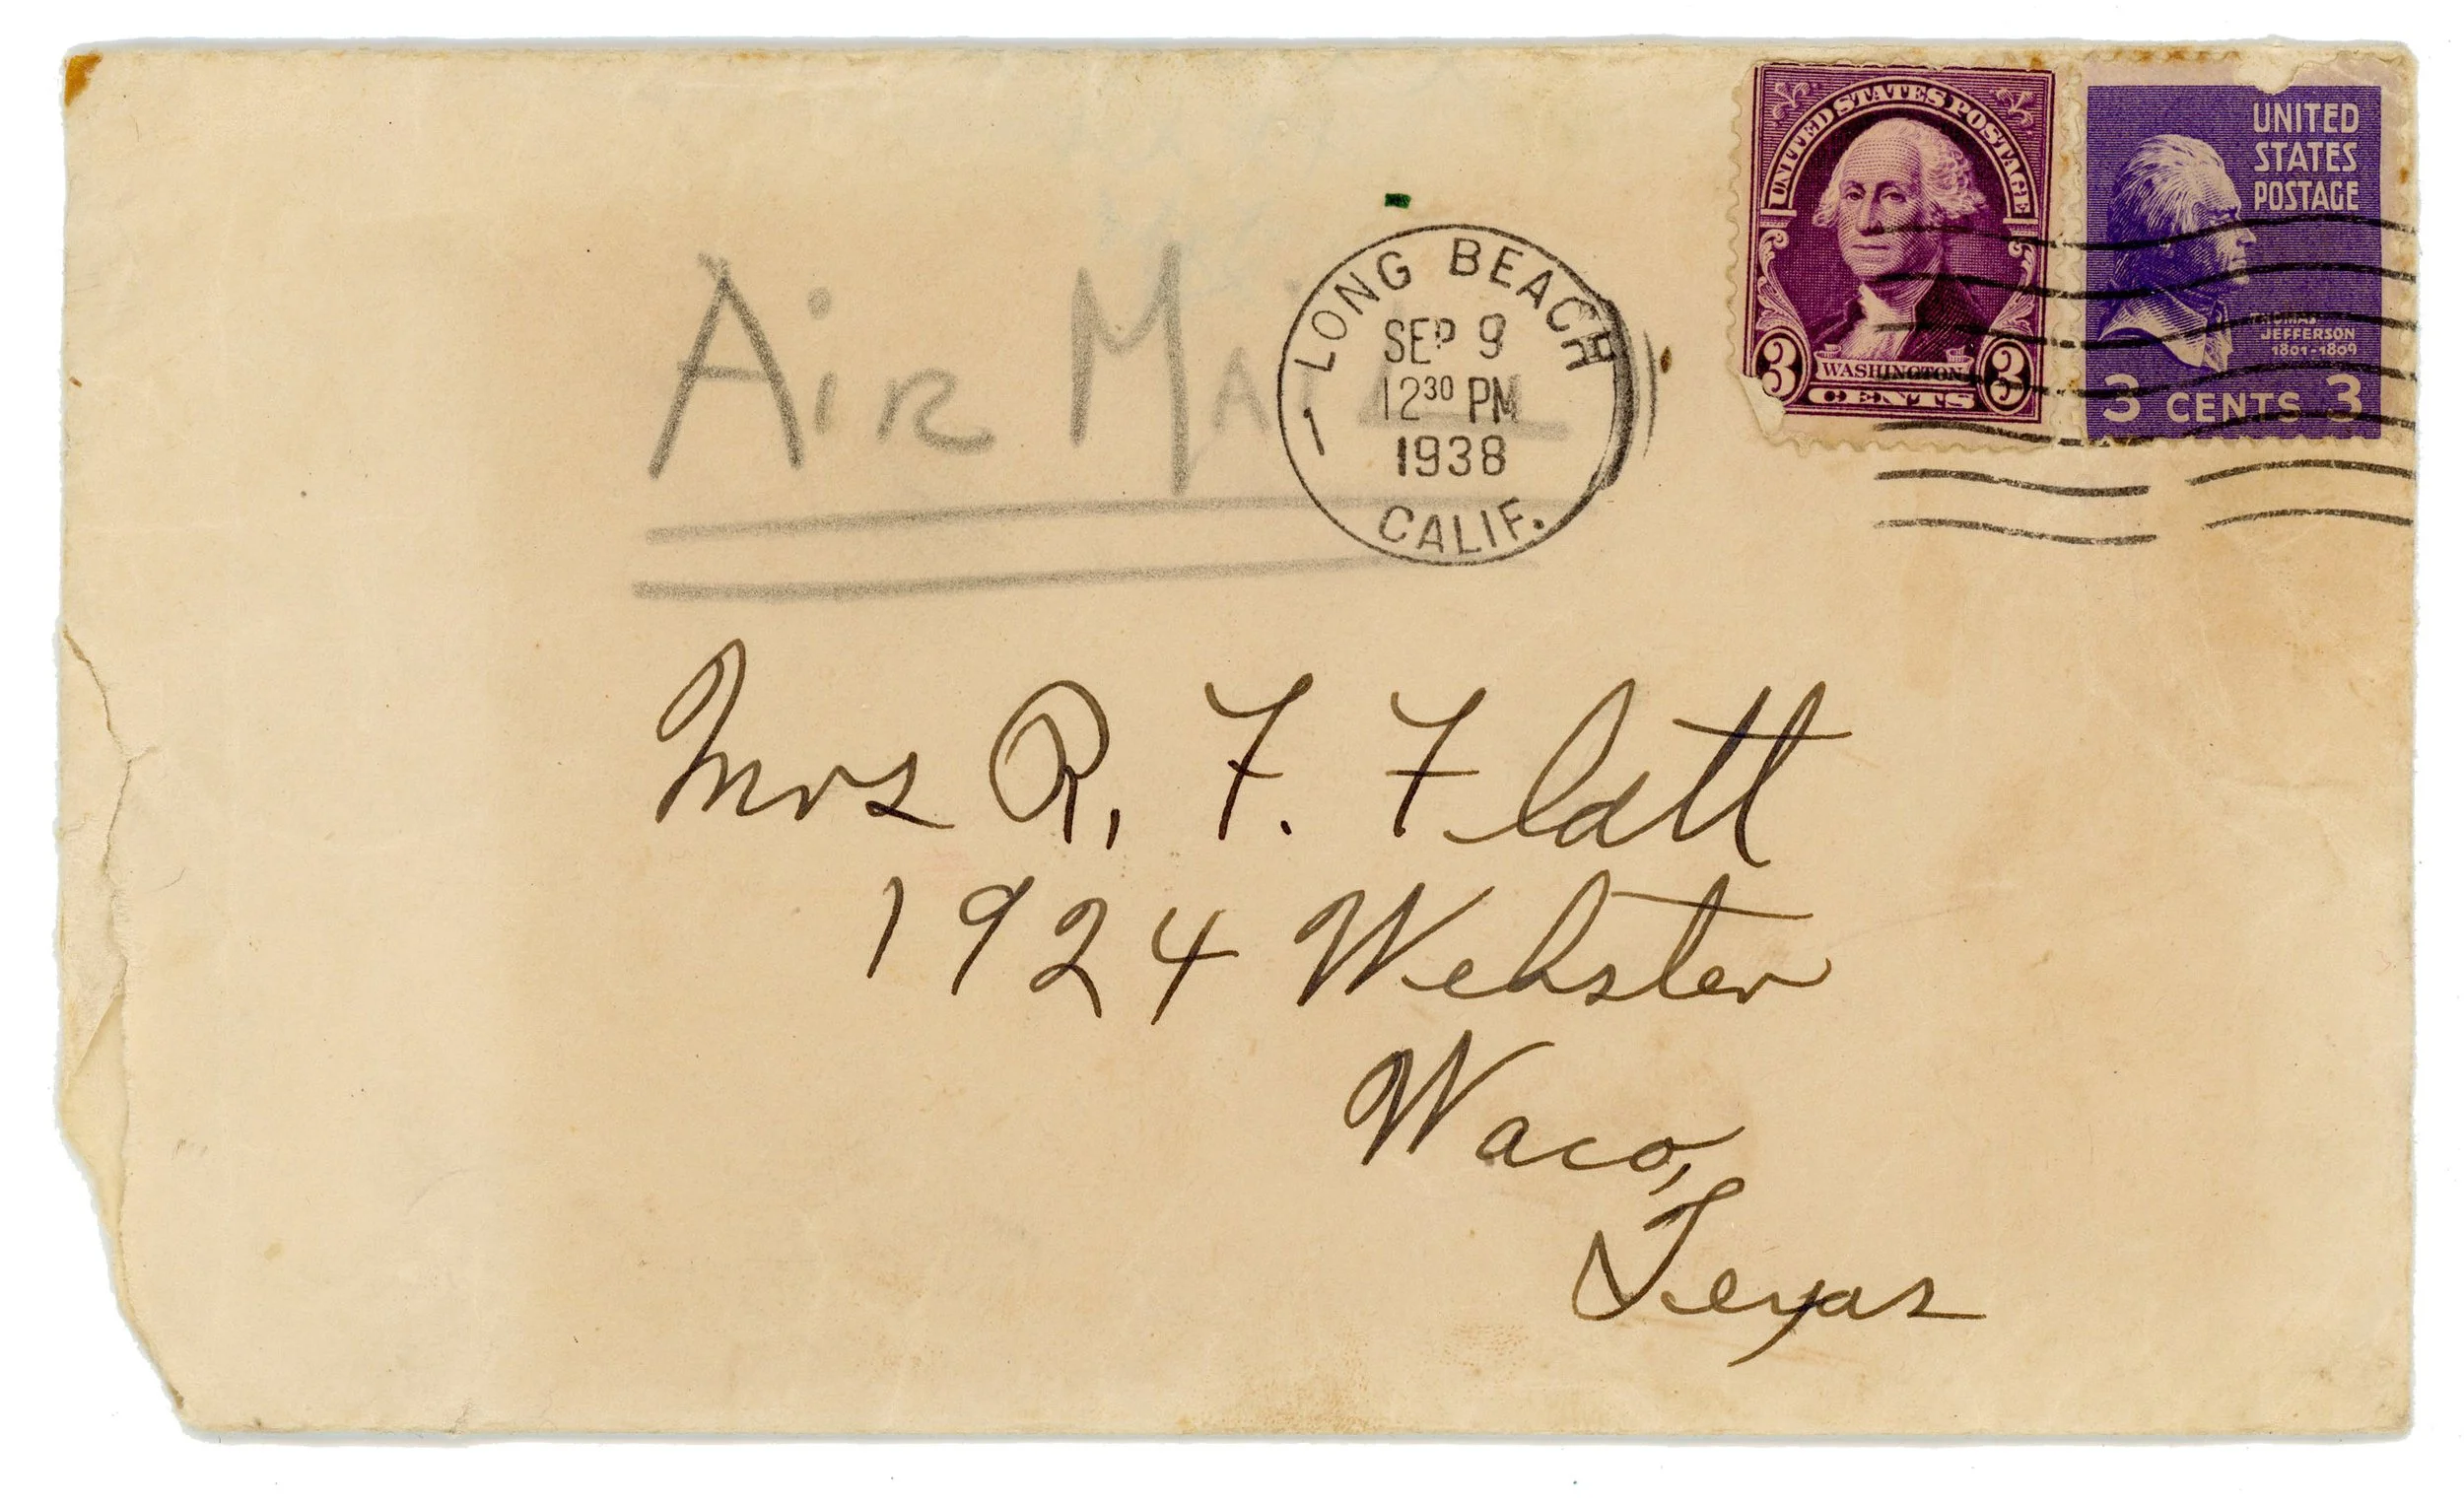 UNITED STATES POSTAGE
3 WASHINGTON 3
CENTS
UNITED
STATES
POSTAGE
THOMAS
JEFFERSON
1801-1809
3 CENTS 3
Air Mail
LONG BEACH
SEP 9
12 30 PM
1938
1
CALIF.
Mrs R, F. Flatt
1924 Webster
Waco,
Texas